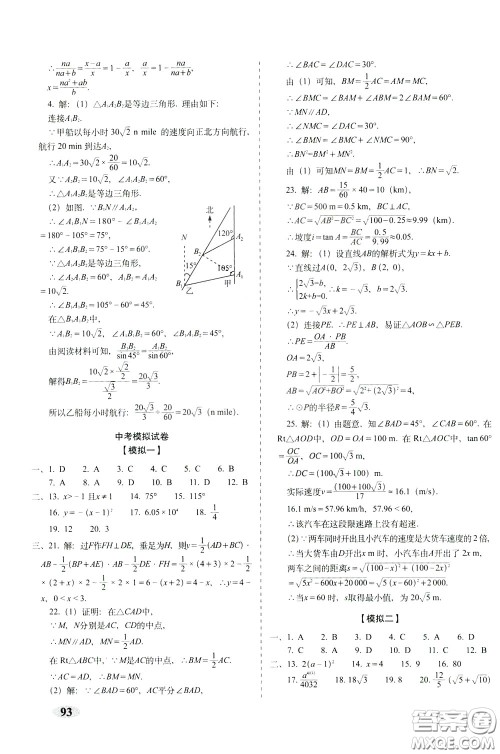 ∴na/(na+b)=(x-a)/x=1-a/x，a/x=1-na/(na+b)，
x=(na²+ab)/b.
4. 解：(1) △A₁A₂B₂是等边三角形. 理由如下：
连接A₁B₂.
∵甲船以每小时30√2 n mile 的速度向正北方向航行，
航行20 min到达A₂，
∴A₁A₂=30√2×20/60=10√2.
又∵A₂B₂=10√2，∠A₁A₂B₂=60°，
∴△A₁A₂B₂是等边三角形.
(2) 如图. ∵B₁N∥A₁A₂，
∴∠A₁B₁N=180°-∠B₁A₁A₂
=180°-105°=75°，
∴∠A₁B₁B₂=75°-15°=60°.
∵△A₁A₂B₂是等边三角形，
∴∠A₂A₁B₂=60°，A₁B₂=A₁A₂
=10√2.
∴∠B₁A₁B₂=105°-60°=45°.
在△B₁A₁B₂中，
∵A₁B₂=10√2，
由阅读材料可知，B₁B₂/sin45°=A₁B₂/sin60°，
解得B₁B₂=(10√2×√2/2)/(√3/2)=20√3/3.
所以乙船每小时航行：20√3/3÷20/60=20√3 (n mile).
北
120°
A₂
N
B₂
105°
A₁
B₁
乙
甲
中考模拟试卷
【模拟一】
一、1. D 2. A 3. C 4. B 5. A 6. B
7. A 8. B 9. C 10. B 11. D 12. B
二、13. x>-1且x≠1 14. 75° 15. 115°
16. y=-(x-1)² 17. 6.05×10⁴ 18. 1/4
19. 12 20. 3
三、21. 解：过F作FH⊥DE，垂足为H，则y=1/2(AD+BC)·
AB-1/2(BP+AE)·AB-1/2DE·FH=1/2×(4+3)×2-1/2
×(2+x)×2-1/2×2×1=6-(2+x)=4-x，即y=4-x，
0<x<3.
22. (1) 证明：在△CAD中，
∵M，N分别是AC，CD的中点，
∴MN∥AD，MN=1/2AD.
在Rt△ABC中，∵M是AC的中点，
∴BM=1/2AC. ∵AC=AD，∴MN=BM.
(2) 解：∵∠BAD=60°，AC平分∠BAD，
93
∴∠BAC=∠DAC=30°.
由(1)可知，BM=1/2AC=AM=MC，
∴∠BMC=∠BAM+∠ABM=2∠BAM=60°.
∵MN∥AD，
∴∠NMC=∠DAC=30°.
∴∠BMN=∠BMC+∠NMC=90°.
∴BN²=BM²+MN².
由(1)可知MN=BM=1/2AC=1，∴BN=√2.
23. 解：AB=15/60×40=10 (km)，
∵BC=500 m=0.5 km，
∴AC=√(AB²-BC²)=√(100-0.25)≈9.99 (km).
∴坡度i=tan A=BC/AC=0.5/9.99≈0.05.
24. 解：(1) 设直线AB的解析式为y=kx+b.
∵直线过A(0，2√3)，B(2，0)，
∴{2√3=b， 2k+b=0. ∴k=-√3，b=2√3.
∴y=-√3x+2√3.
(2) 连接PE. ∴PE⊥AB，易证△AOB∽△PEB.
∴PE=OA·PB/AB.
OA=2√3，
PB=2+|-1/2|=5/2，
AB=√(AO²+BO²)=√(2²+(2√3)²)=4，
∴⊙P的半径R=5/4√3.
25. 解：(1) 由题意，知∠BAD=45°，∠CAB=60°. 在
Rt△AOD中，OD=OA=100 m. 在Rt△AOC中，tan60°
=OC/OA，OC=100√3 m，
∴DC=(100+100√3) m.
实际速度v=(100+100√3)/17≈16.1 (m/s).
16.1 m/s=57.96 km/h，57.96<60.
∴该汽车在这段限速路上没有超速.
(2)∵两车同时开出且小汽车的速度是大货车速度的2倍，
∴当大货车由D开出x m时，小汽车由A开出2x m，
两车之间的距离s=√((100-x)²+(100-2x)²)
=√(5x²-600x+20 000)=√(5(x-60)²+2 000).
∴当x=60时，s取得最小值，为20√5 m.
【模拟二】
一、1. A 2. B 3. D 4. A 5. A 6. D
7. B 8. D 9. C 10. C 11. D 12. C
二、13. 2(a-1)² 14. x=4 15. 14 16. 90°
18. 15√3 19. 8√3 20. 12/5 (√5+√10)
答案圈
MXQE.COM